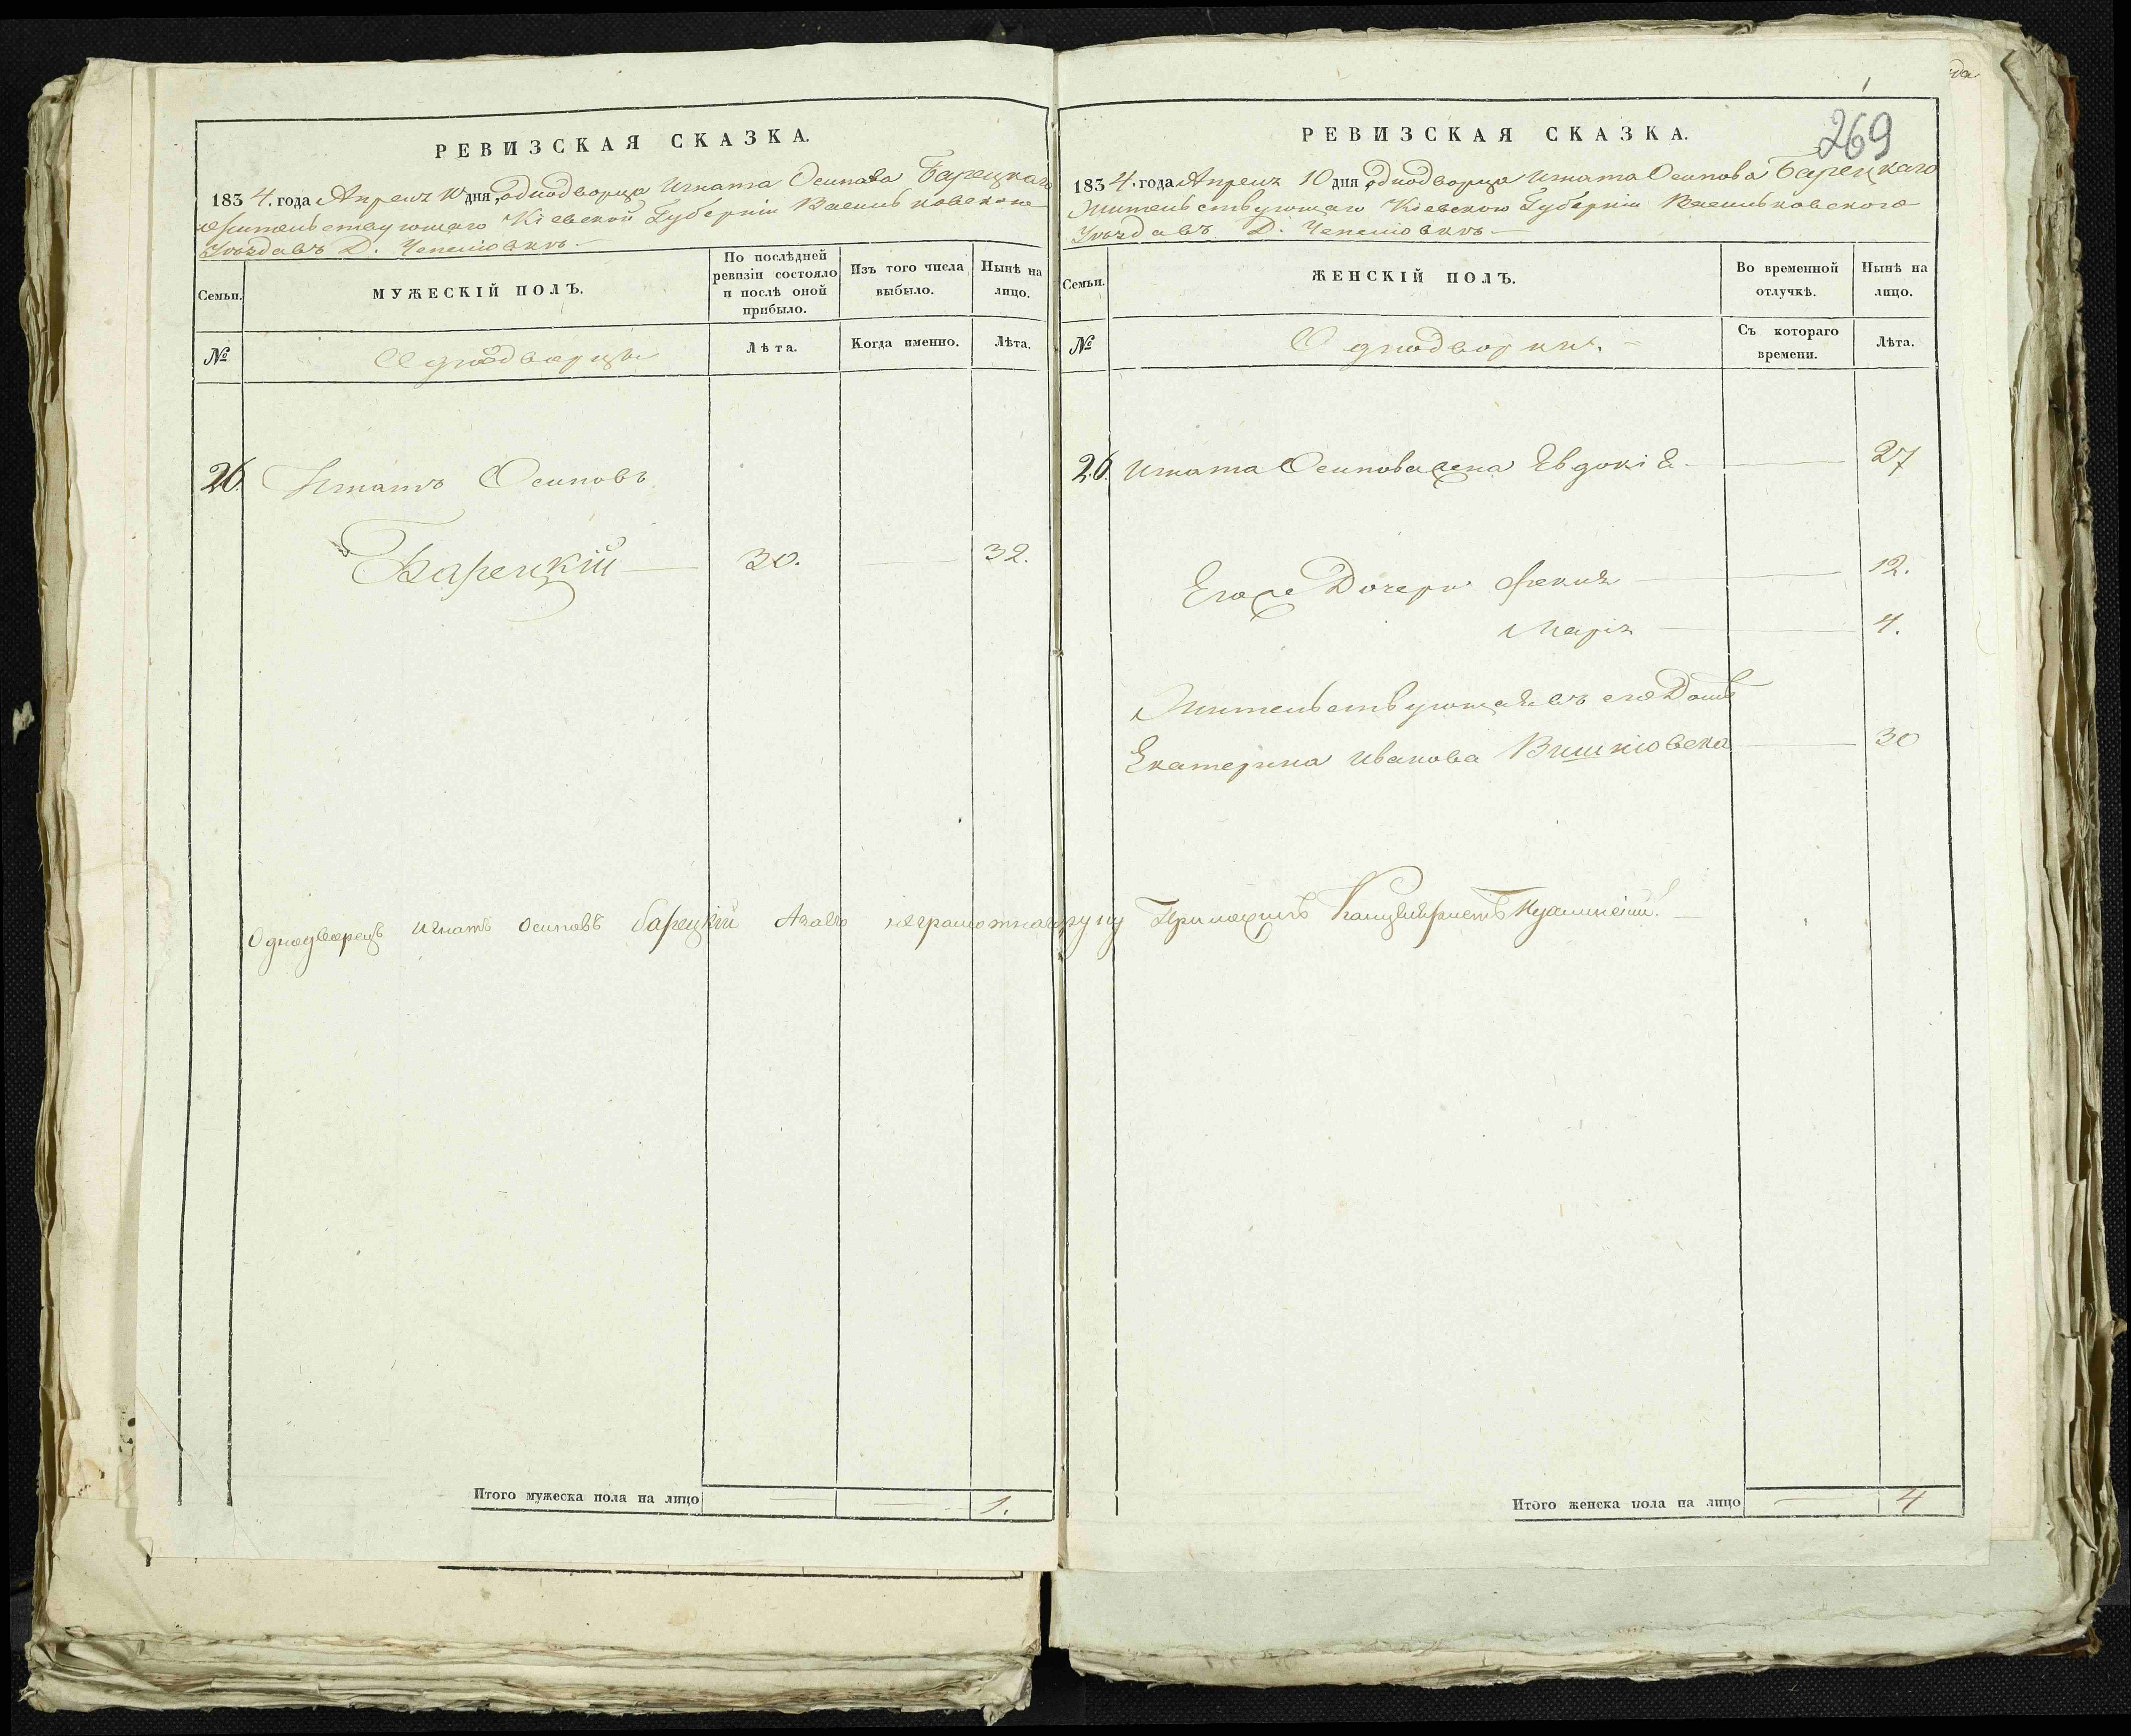 РЕВИЗСКАЯ СКАЗКА.
1834. года Апреля 10 дня, однодворца Игната Осипова Барецкаго
жительствующаго Кіевской Губерніи Васильковскаго
Уѣзда въ Д.
Семьи.
МУЖЕСКІЙ ПОЛЪ.
По послѣдней
ревизіи состояло
и послѣ оной
прибыло.
Изъ того числа
выбыло.
Нынѣ на
лицо.
№
Однодворцы
Лѣта.
Когда именно.
Лѣта.
26. Игнатъ Осиповъ
Барецкій 30. 32.
Однодворецъ Игнатъ Осиповъ Барецкій А за его неграмотного руку Приложилъ Канцеляристъ
Итого мужеска пола на лицо 1.
269
РЕВИЗСКАЯ СКАЗКА.
1834. года Апреля 10 дня однодворца Игната Осипова Барецкаго
Жительствующаго Кіевской Губерніи Васильковского
Уѣзда въ Д.
Семьи.
ЖЕНСКІЙ ПОЛЪ.
Во временной
отлучкѣ.
Нынѣ на
лицо.
№
Однодворки.
Съ котораго
времени.
Лѣта.
26. Игната Осипова жена Евдокія 27
Егоже Дочери 12.
Марія 4.
Жительствующая въ его Домѣ
Екатерина Иванова 30
Итого женска пола на лицо 4